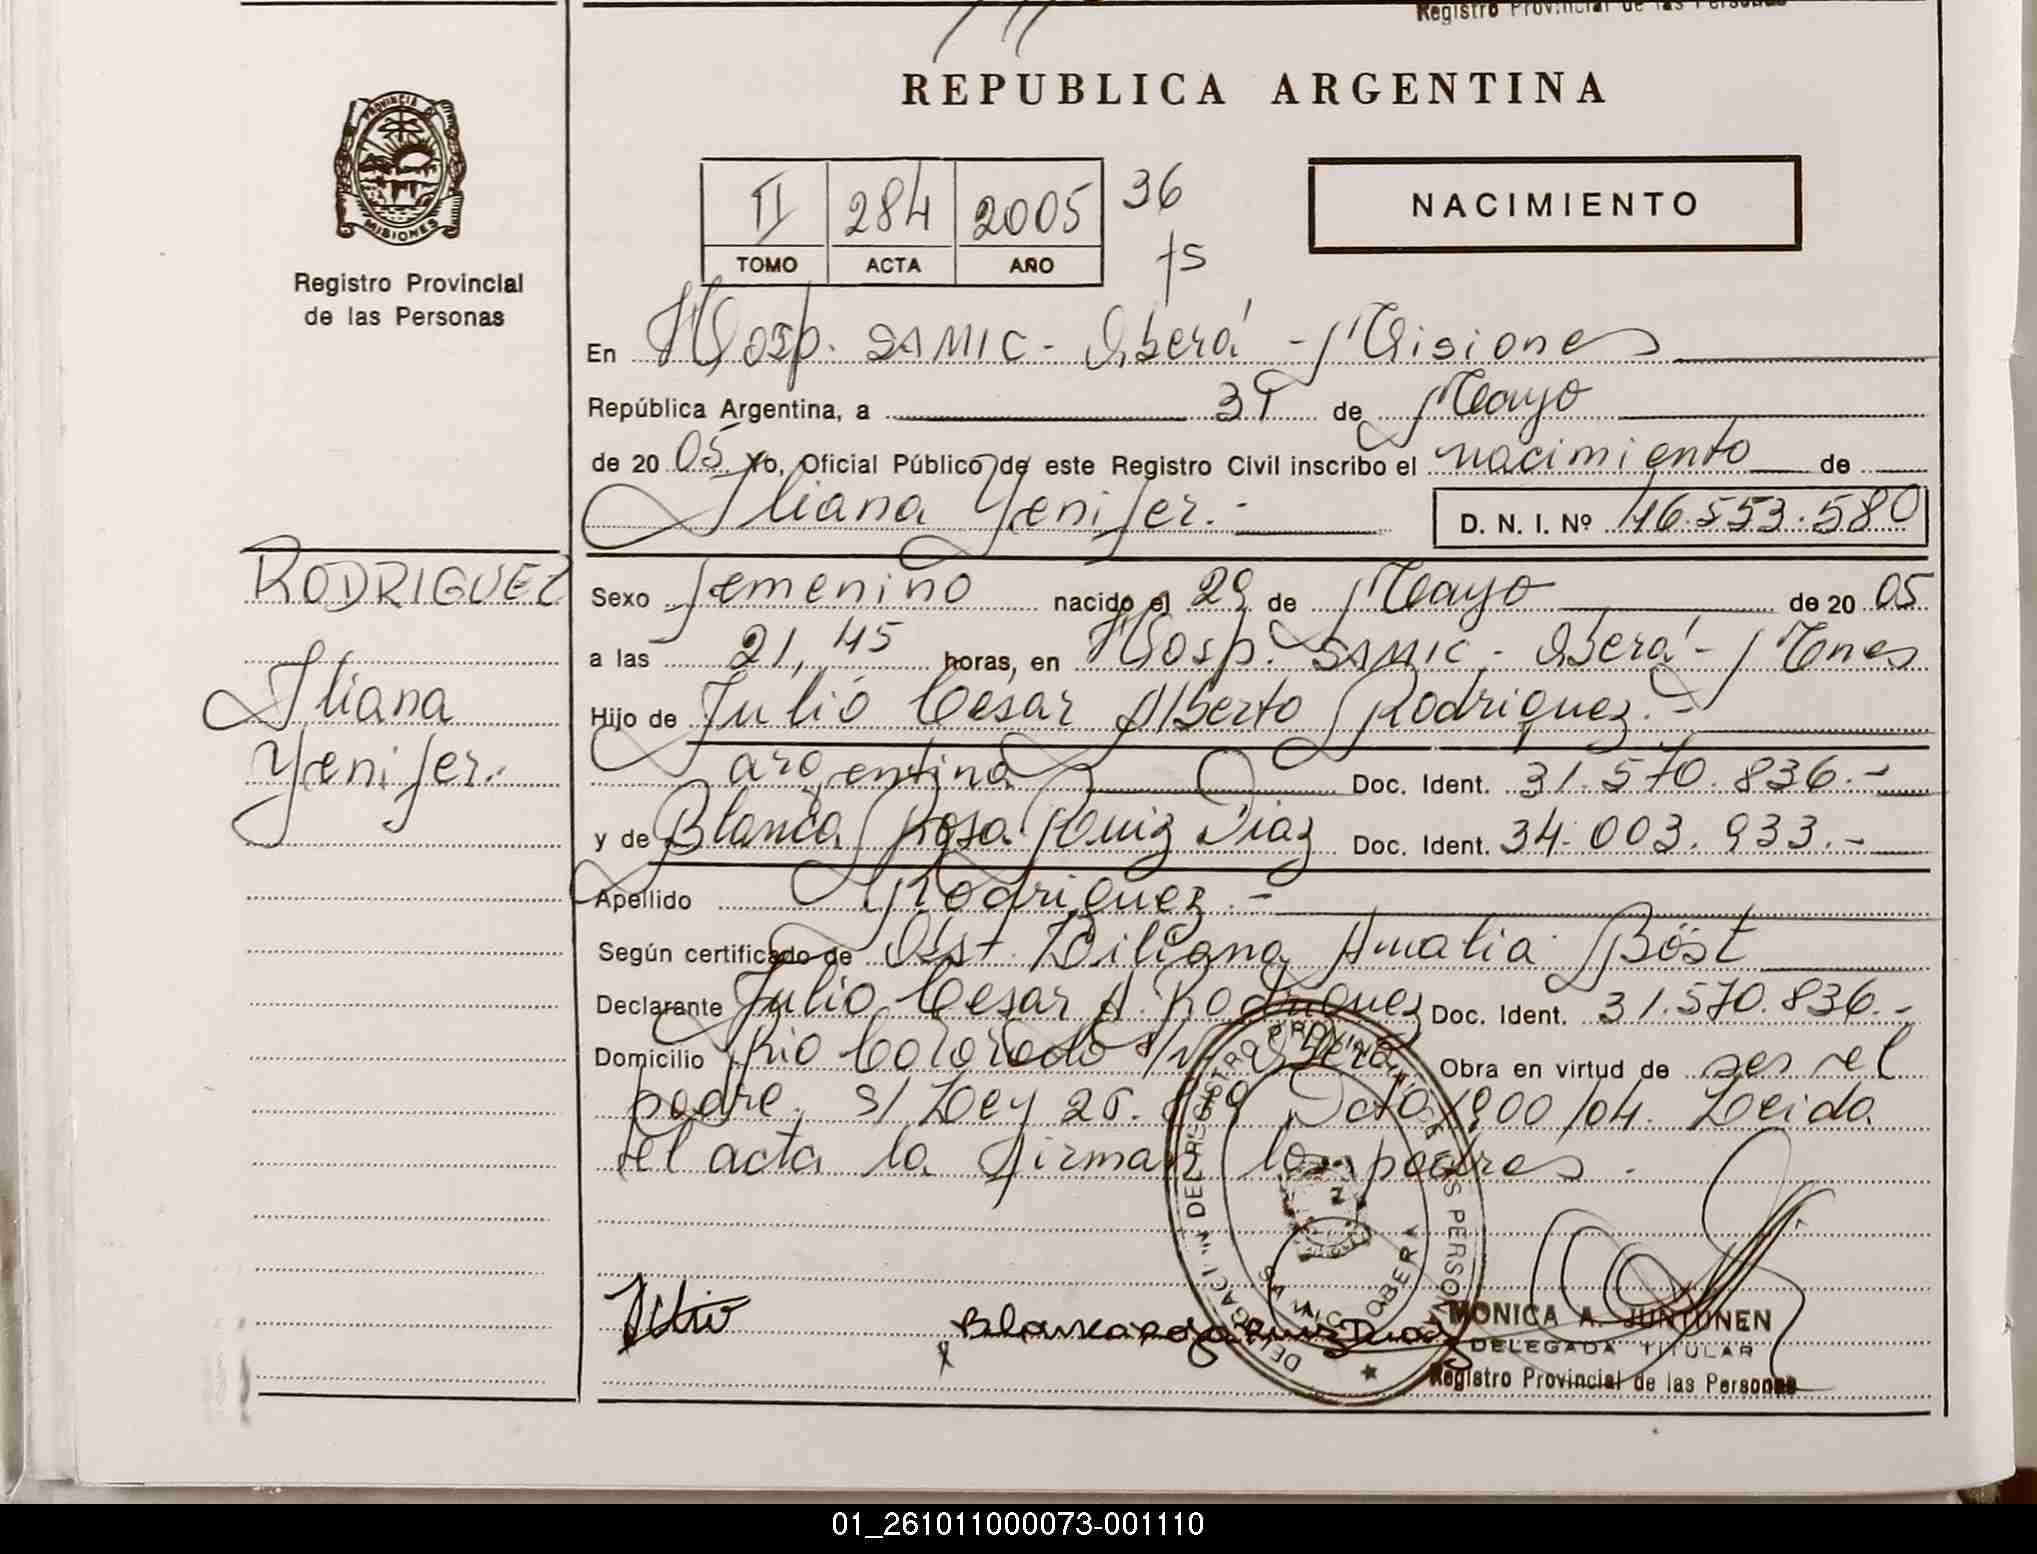 Registro Provincial de las Personas
REPUBLICA ARGENTINA
PROVINCIA DE
MISIONES
Registro Provincial
de las Personas
II 284 2005 36
TOMO ACTA AÑO fs
NACIMIENTO
En Hosp. SAMIC - Oberá - Misiones
República Argentina, a 31 de Mayo
de 2005 Yo, Oficial Público de este Registro Civil inscribo el nacimiento de
Iliana Yenifer.- D. N. I. Nº 46.553.580
RODRIGUEZ
Iliana
Yenifer.-
Sexo femenino nacido el 29 de Mayo de 2005
a las 21,45 horas, en Hosp. SAMIC - Oberá - Mnes
Hijo de Julio Cesar Alberto Rodriguez.-
argentina Doc. Ident. 31.570.836.-
y de Blanca Rosa Ruiz Diaz Doc. Ident. 34.003.933.-
Apellido Rodriguez.-
Según certificado de Obst. Biliana Amalia Böst
Declarante Julio Cesar A. Rodriguez Doc. Ident. 31.570.836.-
Domicilio Rio Colorado s/n Oberá Obra en virtud de ser el
padre. s/ Ley 25. Dcto 1900/04. Leida
el acta la firman los padres.
DELEGACION DEL REGISTRO PROVINCIAL DE LAS PERSONAS
SAMIC OBERA
Julio
x Blanca rosa Ruiz Diaz
MONICA A. JUNTUNEN
DELEGADA TITULAR
Registro Provincial de las Personas
01_261011000073-001110